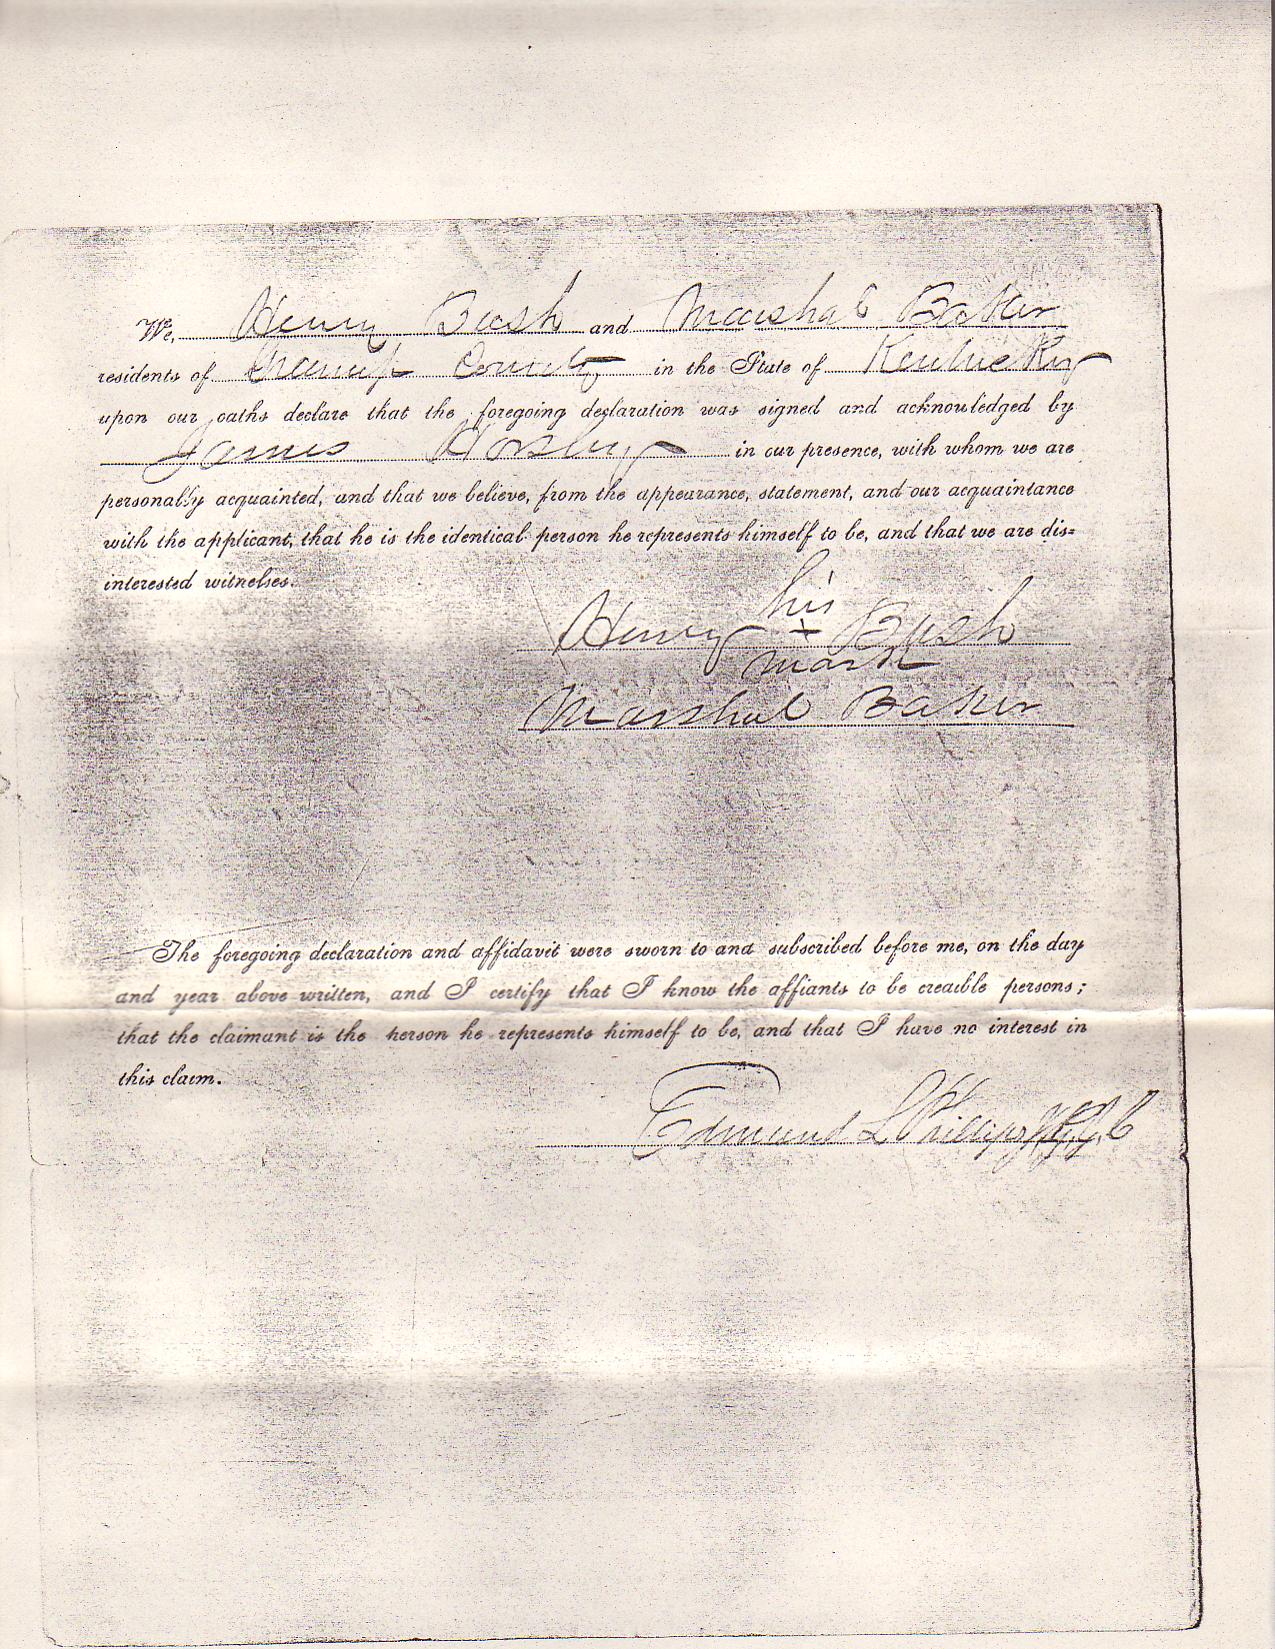 We, Henry Bush and Marshal Baker
residents of County in the State of Kentucky
upon our oaths declare that the foregoing declaration was signed and acknowledged by
James in our presence, with whom we are
personally acquainted, and that we believe, from the appearance, statement, and our acquaintance
with the applicant, that he is the identical person he represents himself to be, and that we are dis=
interested witnesses.
his
Henry + Bush
mark
Marshal Baker
The foregoing declaration and affidavit were sworn to and subscribed before me, on the day
and year above written, and I certify that I know the affiants to be credible persons;
that the claimant is the person he represents himself to be, and that I have no interest in
this claim.
Edmund L Phillips